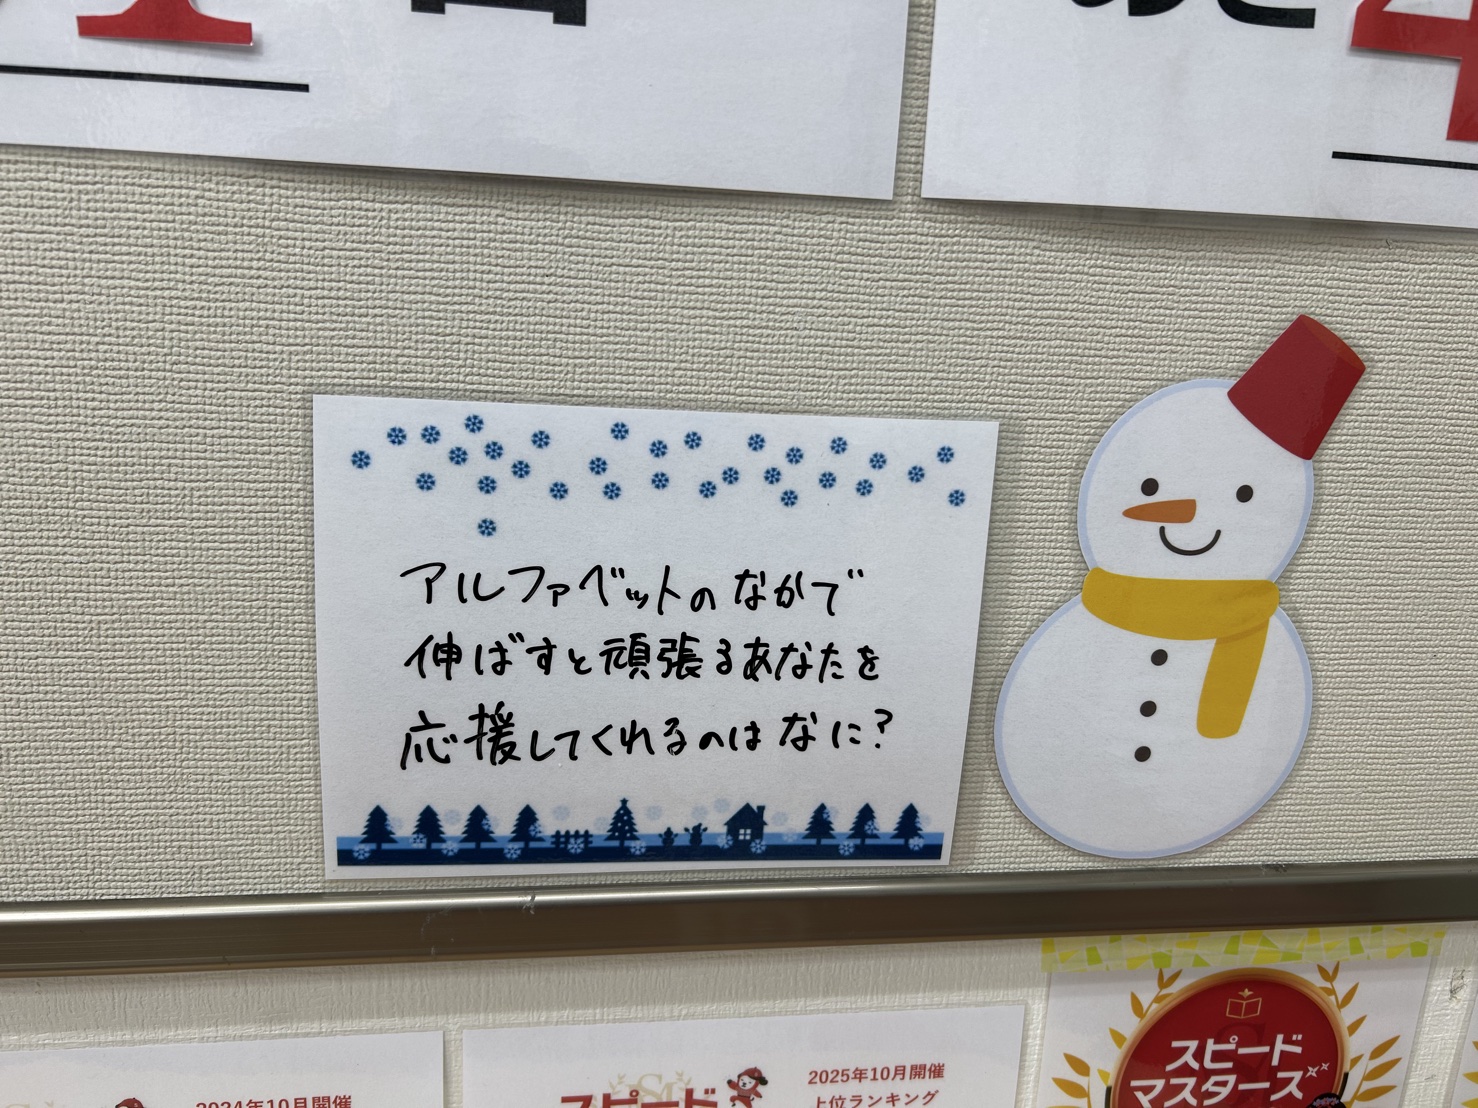 アルファベットのなかで
伸ばすと頑張るあなたを
応援してくれるのはなに?
スピード
マスターズ
2024年10月開催
スピード
2025年10月開催
上位ランキング